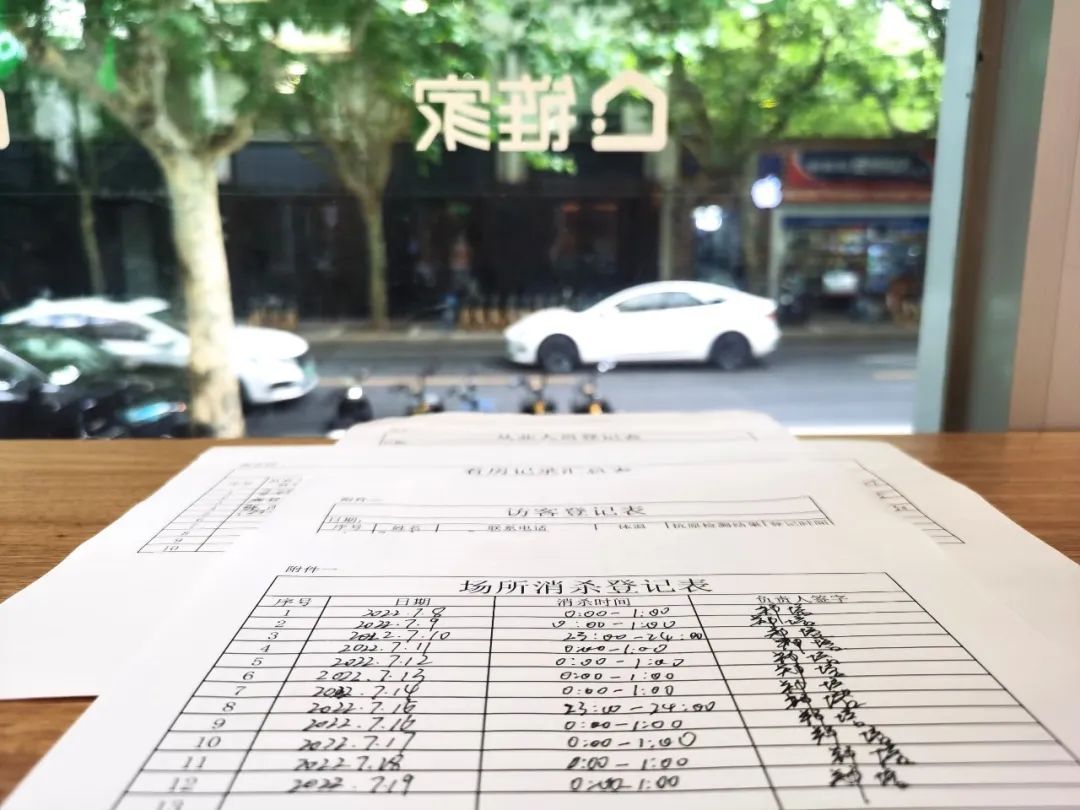 链家
从业人员登记表
看房记录汇总表
附件二
访客登记表
日期:
序号 姓名 联系电话 体温 抗原检测结果 登记时间
附件一
场所消杀登记表
序号 日期 消杀时间 负责人签字
1 2022.7.8 0:00-1:00
2 2022.7.9 0:00-1:00
3 2022.7.10 23:00-24:00
4 2022.7.11 0:00-1:00
5 2022.7.12 0:00-1:00
6 2022.7.13 0:00-1:00
7 2022.7.14 0:00-1:00
8 2022.7.15 23:00-24:00
9 2022.7.16 0:00-1:00
10 2022.7.17 0:00-1:00
11 2022.7.18 0:00-1:00
12 2022.7.19 0:00-1:00
13